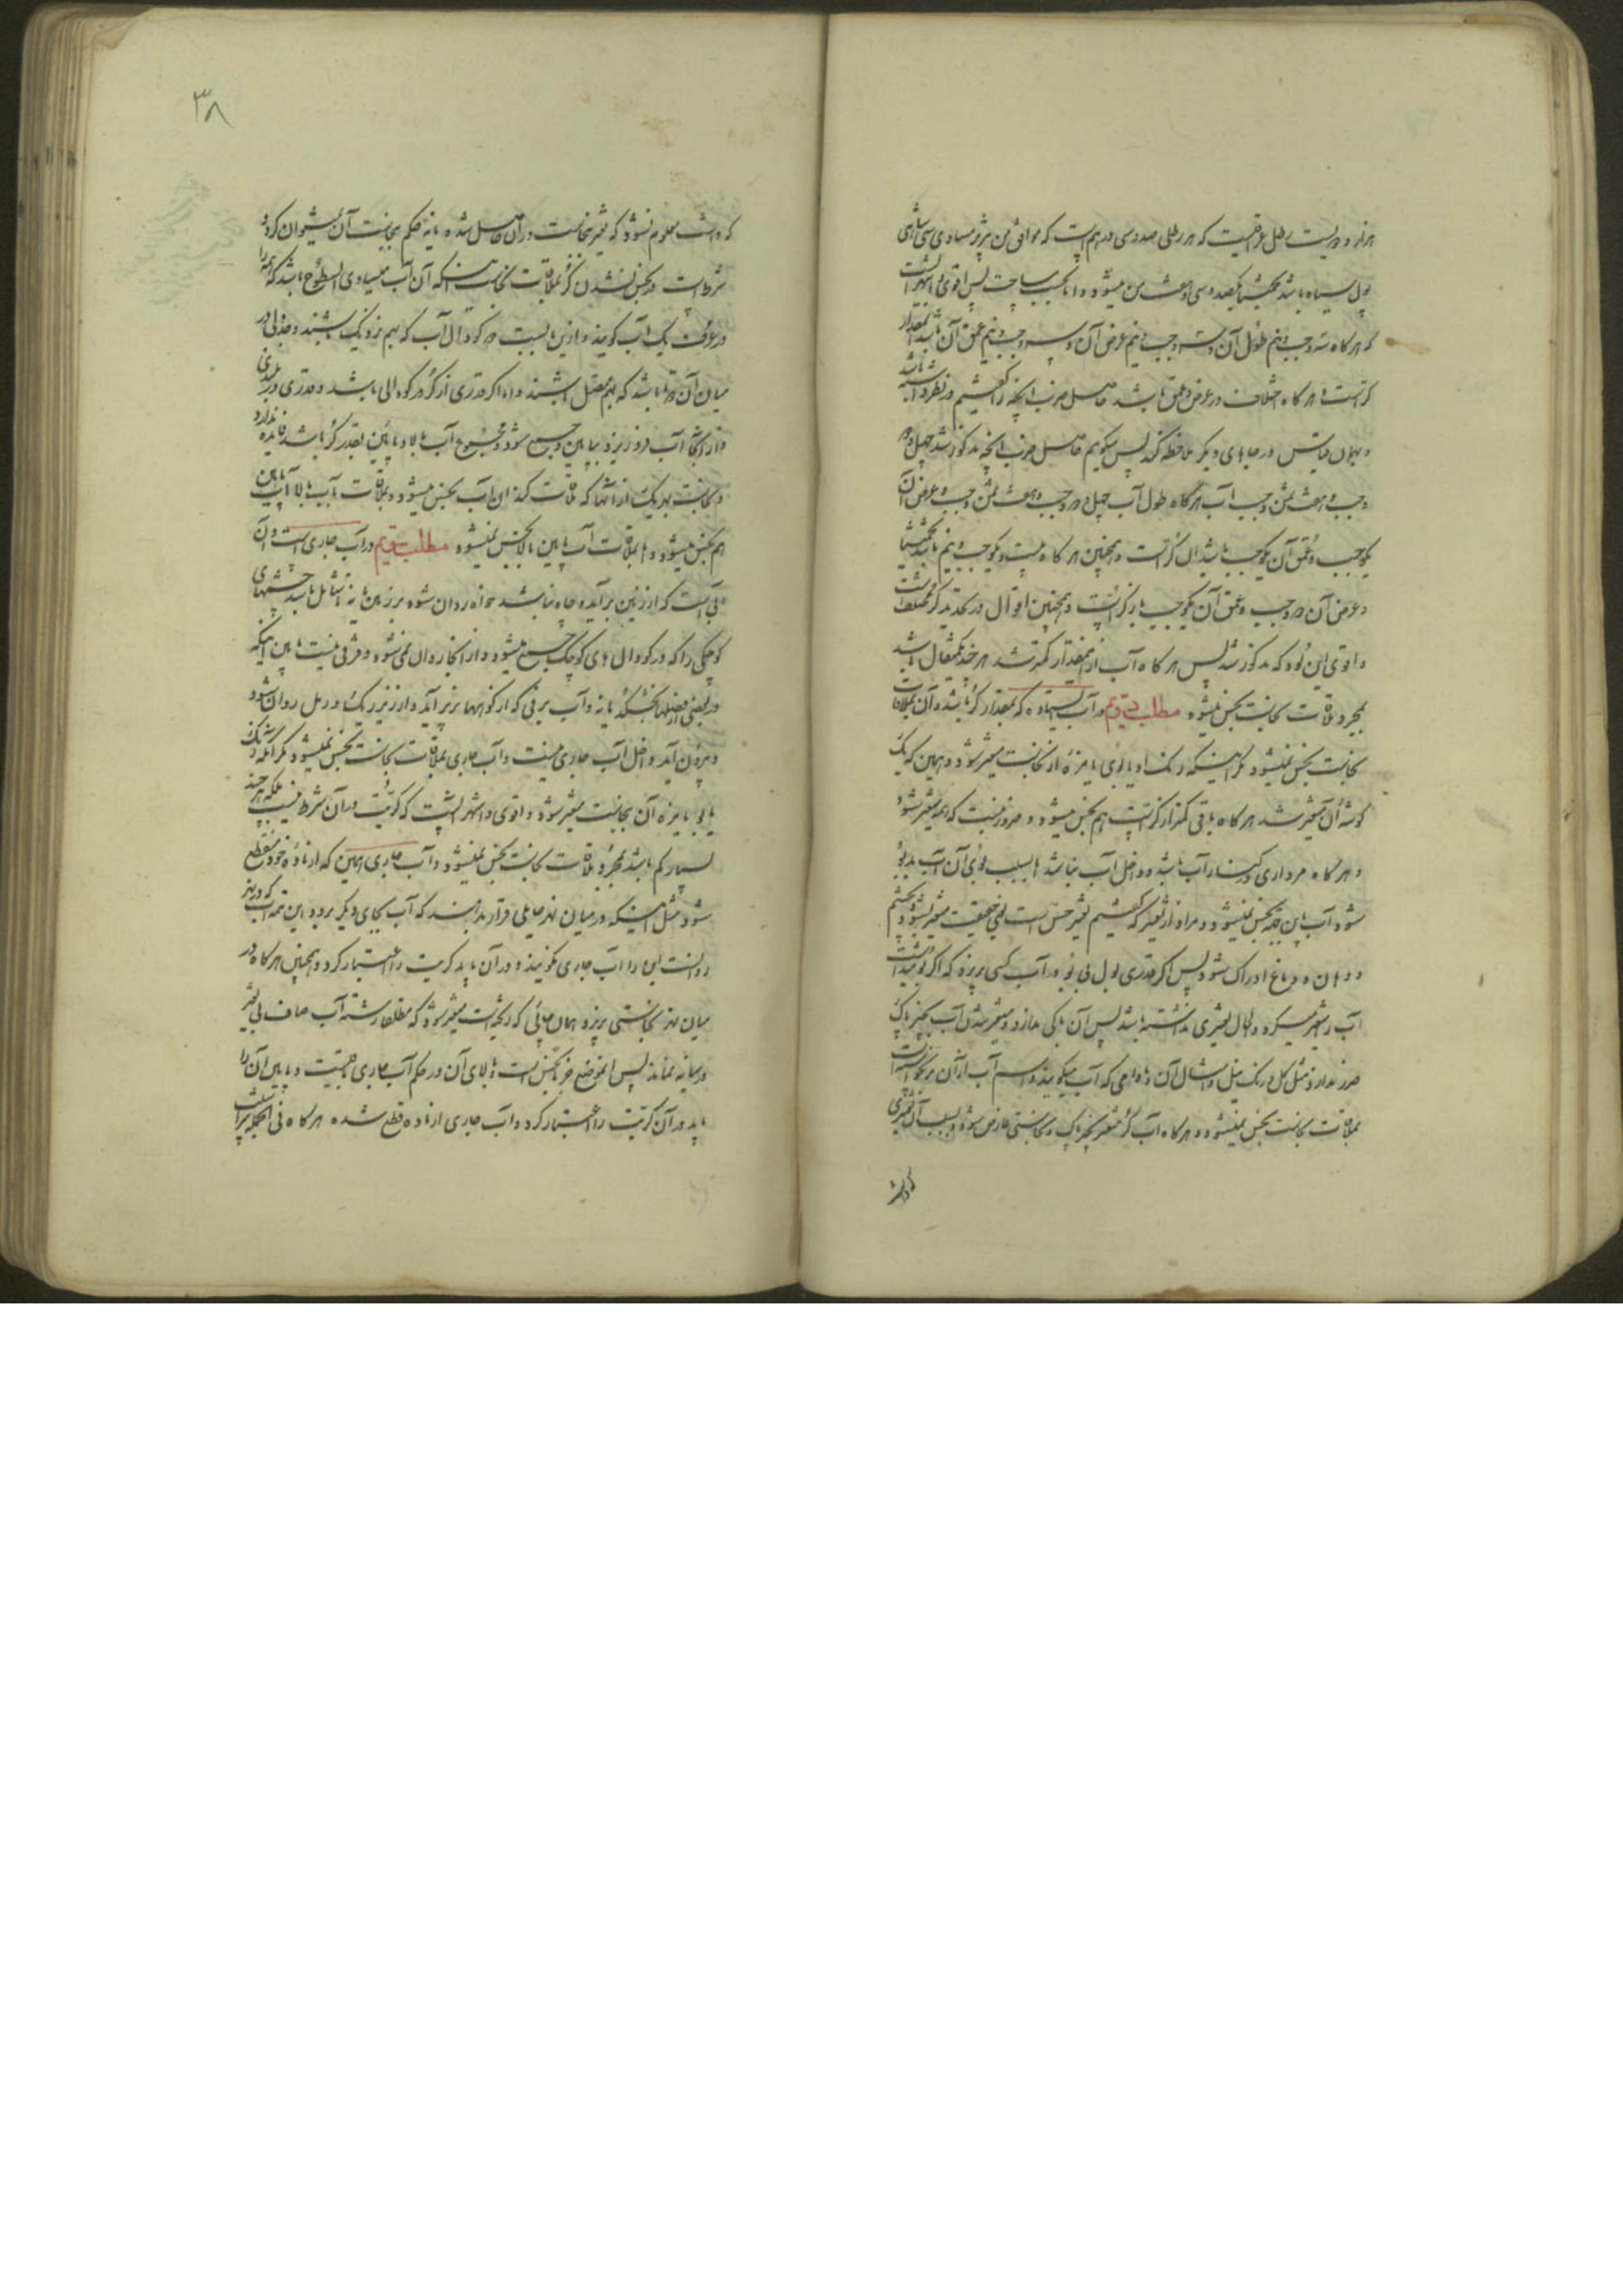 هزار و دویست رطل عراقیست که هر رطلی صد و سی درهم است که موافق من تبریز مساوی سی شاهی
پول سیاه باشد تخمینا یکصد و سی و هشت من میشود و اما بحسب مساحت پس اقوی و اشهر آنست
که هر کاه سه وجب و نیم طول آن و سه وجب و نیم عرض آن و سه وجب و نیم عمق آن باشد بمقدار
کر است و هر کاه اختلاف در عرض و عمق باشد حاصل ضرب آنچه را کفتیم در نظر داشته باشد
و بهمان قیاس در جاهای دیکر ملاحظه کند پس میکوییم حاصل ضرب آنچه مذکور شد چهل و دو
وجب و هفت ثمن وجب آب هرکاه طول آب چهل و دو وجب و هفت ثمن وجب و عرض آن
یکوجب و عمق آن یکوجب باشد آن کر است و همچنین هر کاه بیست و یکوجب و نیم باشد تخمینا
و عرض آن دو وجب و عمق آن یکوجب باز کر است و همچنین اقوال در تحدید کر مختلف است
و اقوی این بود که مذکور شد پس هر کاه آب ازینمقدار کمتر شد هر چند یکمثقال باشد
بمجرد ملاقات نجاست نجس میشود مطلب دویم در آب ایستاده که بمقدار کر باشد و آن بملاقات
نجاست نجس نمیشود مکر اینکه رنک او یا بوی یا مزه از نجاست متغیر شود و همین که یک
کوشه آن متغیر شد هر کاه باقی کمتر از کر است هم نجس میشود و ضرور نیست که همه متغیر شود
و هر کاه مرداری در کنار آب باشد و داخل آب نباشد و بسبب بوی آن آب بد بو
شود آب باین جهة نجس نمیشود و مراد از تغیر که کفتیم تغیر حسی است یعنی حقیقت متغیر شود و بچشم
و دهان و دماغ ادراک شود پس اکر قدری بول بی بو در آب کسی بریزد که اکر بو میداشت
آب را متغیر میکرد و الحال تغیری نداشته باشد پس آن باکی ندارد و متغیر شدن آب بچیز پاک
ضرر ندارد مثل کل و رنک نیل و امثال آن و مادامی که آب میکویند و اسم آب از آن برنخواسته است
بملاقات نجاست نجس نمیشود و هر کاه آب کر متغیر بچیز پاک و نجاستی عارض شود و بسبب آن تغیری
که داشت معلوم نشود که تغیر نجاست در آن حاصل شده یا نه حکم نجاست آن نمیتوان کرد و
شرط است در نجس نشدن کر بملاقات نجاست اینکه آن آب مساوی السطوح باشد که همه را
در عرف یک آب کویند و ازین بابست دو کودال آب که بهم نزدیک باشند و جدولی در
میان آن دو تا باشد که بهم متصل باشند و اما اکر قدری از کر در کودالی باشد و قدری در بلندی
و از آنجا آب فرو ریزد بپایین و جمع شود و مجموع آب بالا و پایین بقدر کر باشد فایده ندارد
و نجاست بهر یک از آنها که ملاقات کند آن آب نجس میشود و بملاقات بآب بالا آب پایین
هم نجس میشود و اما بملاقات آب پایین بالا نجس نمیشود مطلب سیم در آب جاری است و آن
آبی است که از زمین برآید و چاه نباشد خواه روان شود بر زمین یا نه تا شامل باشد چشمهای
کوچکی را که در کودال های کوچک جمع میشود و از آنجا روان نمی شود و فرقی نیست ما بین اینکه
در بعضی از فصلها بخشکد یا نه و آب برفی که از کوهها بزیر آید و از زیر ریک و رمل روان شود
و بیرون آید داخل آب جاری نیست و آب جاری بملاقات نجاست نجس نمیشود مکر آنکه رنک
یا بو یا مزه آن بنجاست متغیر شود و اقوی و اشهر آنست که کریت در آن شرط نیست بلکه هر چند
بسیار کم باشد بمجرد ملاقات نجاست نجس نمیشود و آب جاری همین که از ماده خود منقطع
شود مثل اینکه در میان نهر حایلی قرار بدهند که آب بجای دیکر برود این تتمه آب که در نهر
روانست این را آب جاری نکویند و در آن باید کریت را اعتبار کرد و همچنین هر کاه در
میان نهر نجاستی بریزد همان جائی که ریخته است متغیر شود که مطلقا رشته آب صاف بی تغیر
در میانه نماند پس آن موضع خود نجس است و بالای آن در حکم آب جاری باقیست و پایین آن را
باید در آن کریت را اعتبار کرد و آب جاری از ماده قطع شده هر کاه فی الجمله
۳۸